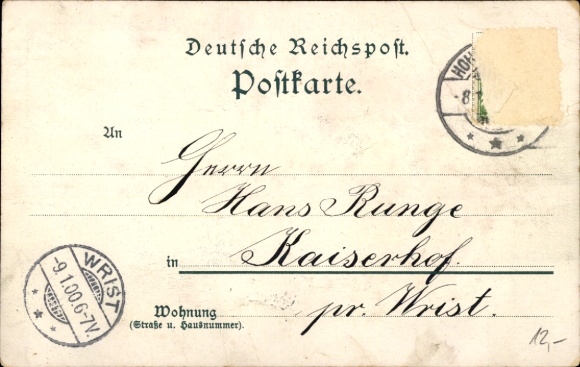 Deutsche Reichspost.
Postkarte.
HOH
8.1
An
Herrn
Hans Runge
in Kaiserhof
pr. Wrist.
Wohnung
(Straße u. Hausnummer).
WRIST
-9.1.00.6-7V.
12,-